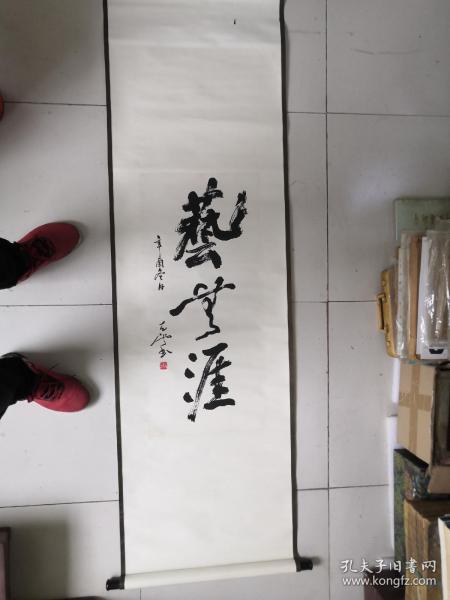 藝無涯
辛酉冬月
孔夫子旧书网
www.kongfz.com